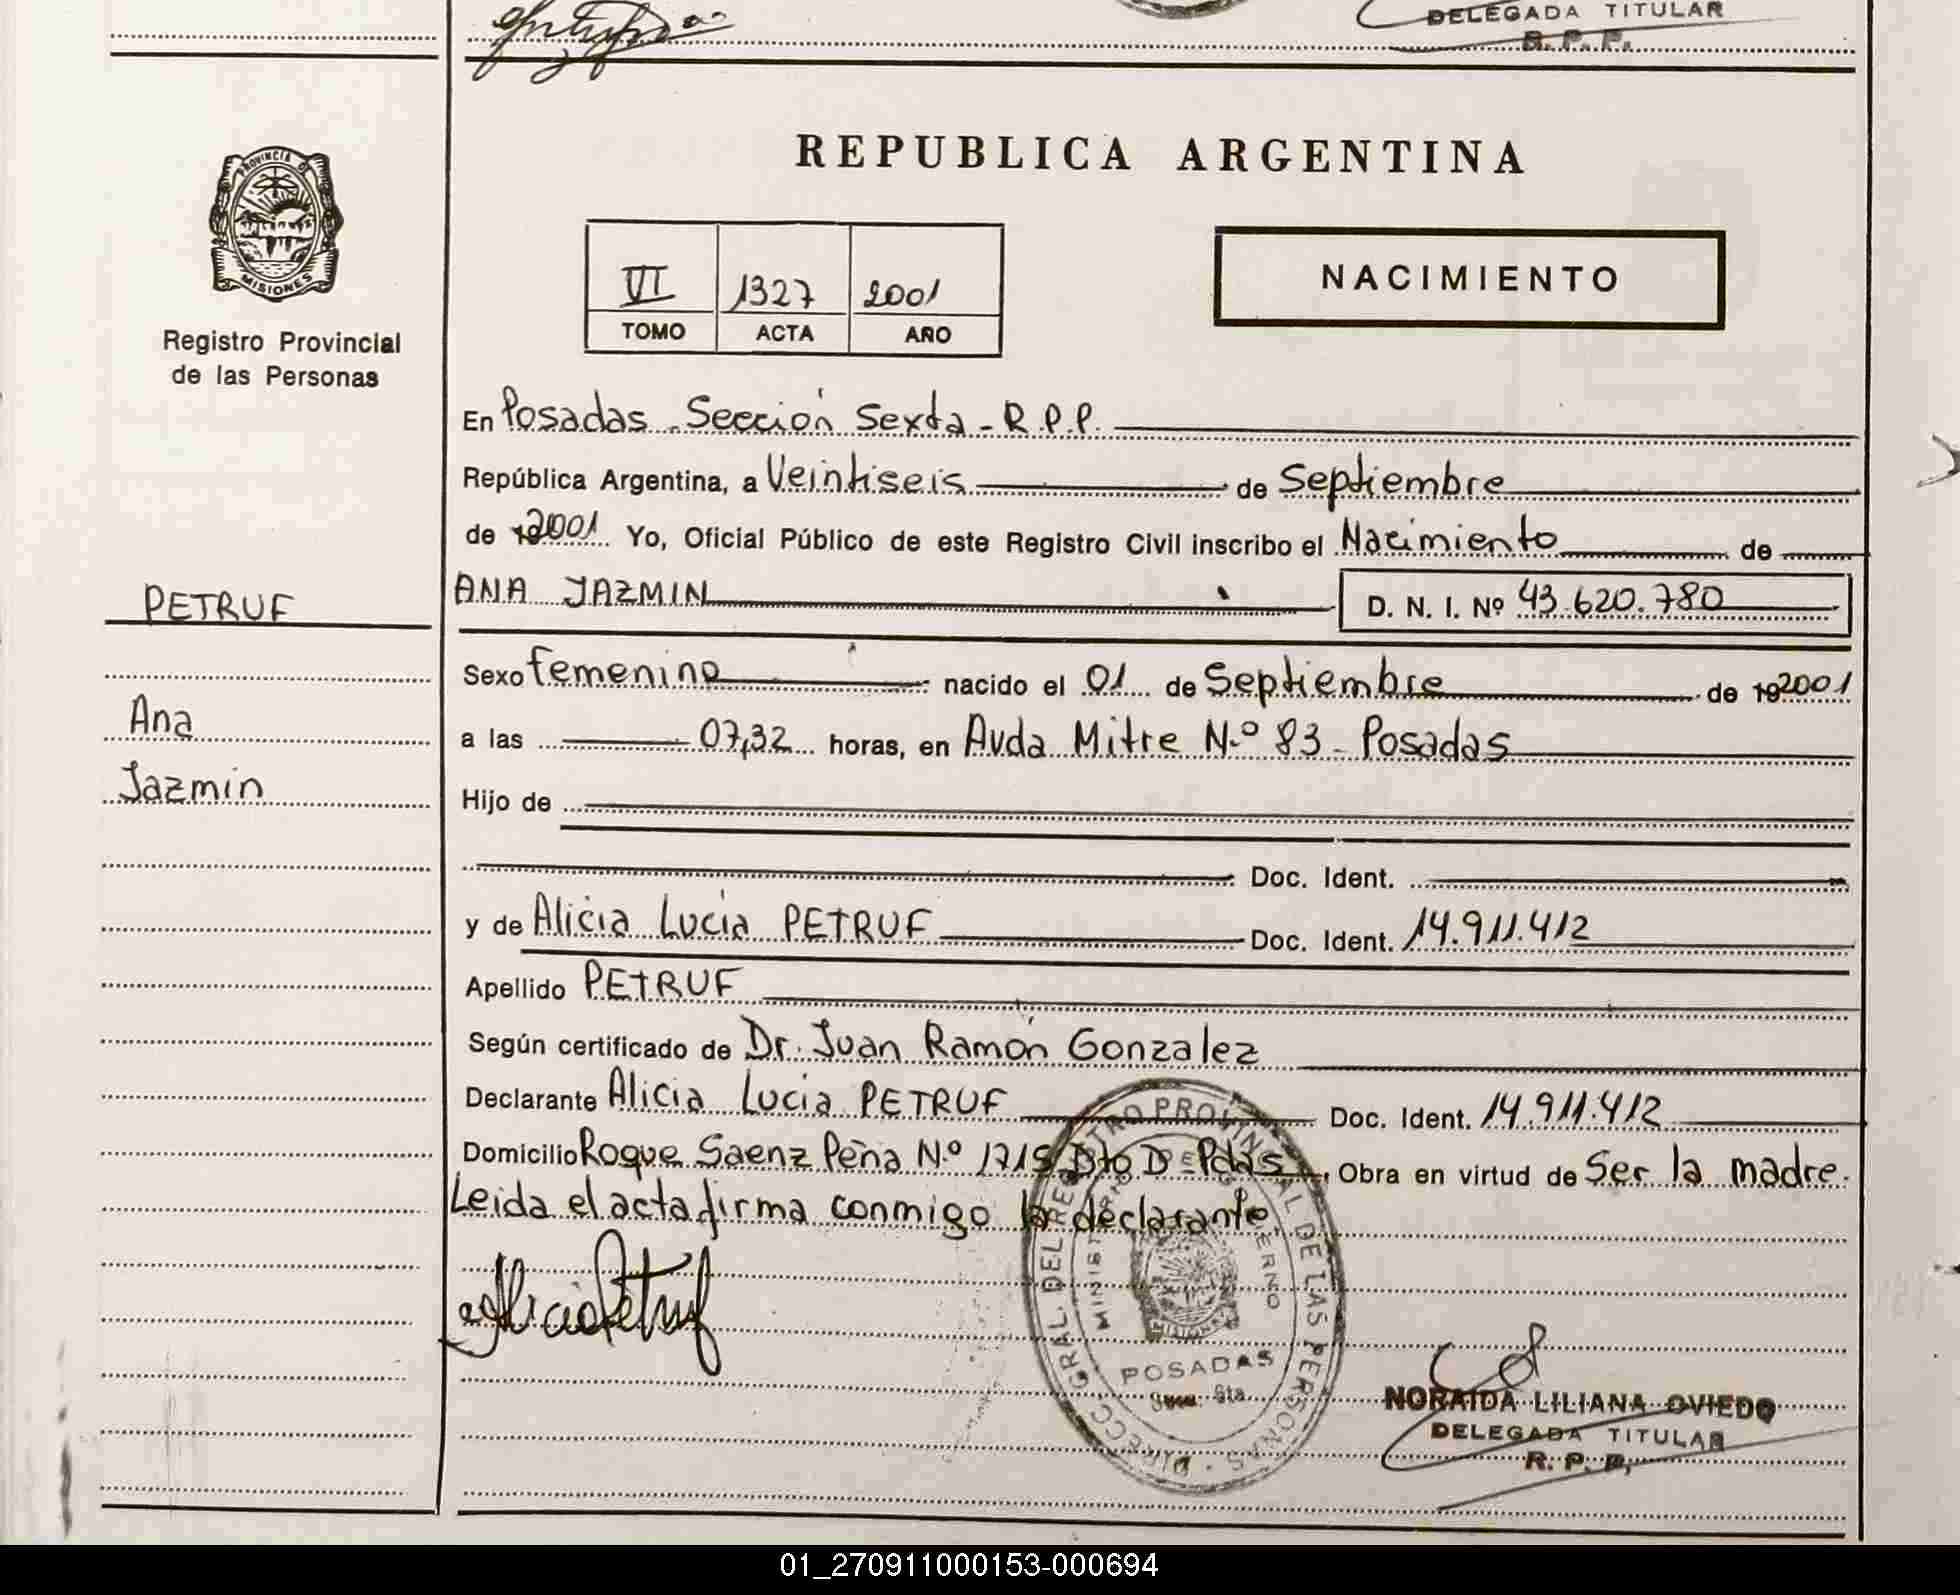 DELEGADA TITULAR
R. P. P.
PROVINCIA DE
MISIONES
Registro Provincial
de las Personas
REPUBLICA ARGENTINA
VI 1327 2001
TOMO ACTA AÑO
NACIMIENTO
En Posadas - Sección Sexta - R.P.P.
República Argentina, a Veintiseis de Septiembre
de 192001 Yo, Oficial Público de este Registro Civil inscribo el Nacimiento de
PETRUF
Ana
Jazmin
ANA JAZMIN D. N. I. Nº 43.620.780
Sexo Femenino nacido el 01 de Septiembre de 192001
a las 07,32 horas, en Avda Mitre N.º 83 - Posadas
Hijo de
Doc. Ident.
y de Alicia Lucia PETRUF Doc. Ident. 14.911.412
Apellido PETRUF
Según certificado de Dr. Juan Ramón Gonzalez
Declarante Alicia Lucia PETRUF Doc. Ident. 14.911.412
Domicilio Roque Saenz Peña N.º 1715 Dto D - Pdas, Obra en virtud de Ser la madre.
Leida el acta firma conmigo la declarante.
Alicia Petruf
DIRECC. GRAL. DEL REGISTRO PROVINCIAL DE LAS PERSONAS
MINISTERIO DE GOBIERNO
MISIONES
POSADAS
Secc. 6ta
NORAIDA LILIANA OVIEDO
DELEGADA TITULAR
R. P. P.
01_270911000153-000694